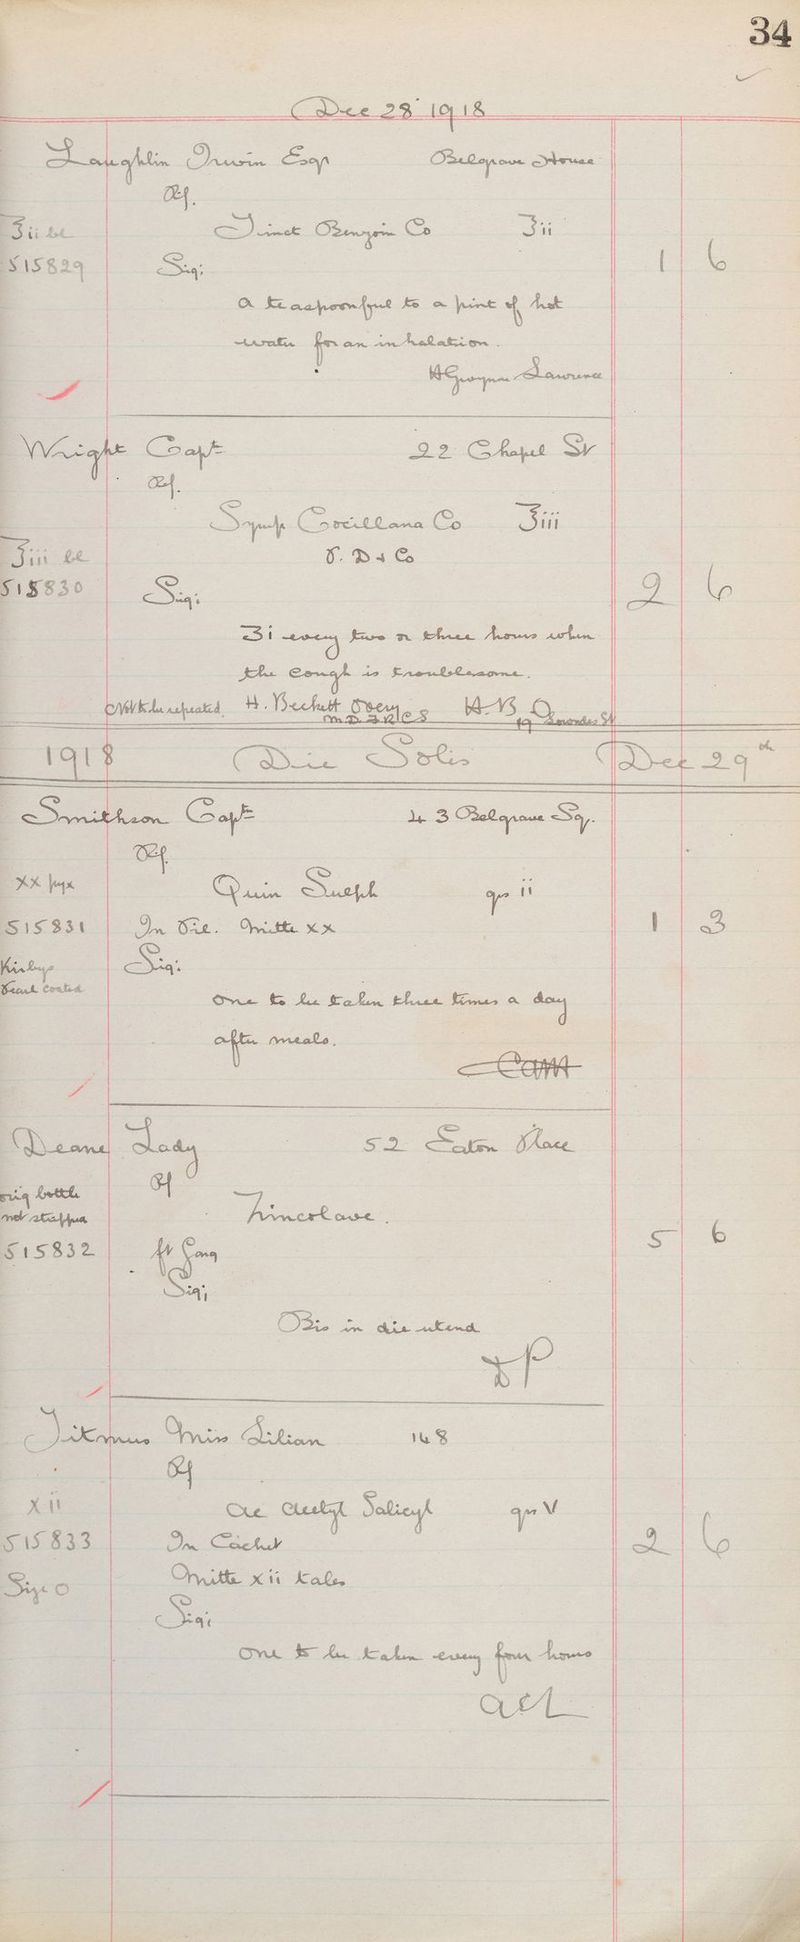 34
Dec 28 1918
Laughlin Irwin Esqr Belgrave House
Rf.
℥ii be Tinct Benzoin Co ℥ii
515829 Sig: 1 6
A teaspoonful to a pint of hot
water for an inhalation.
H Gwynne Lawrence
Wright Capt 22 Chapel St
Rf.
Syrup Cocillana Co ℥iii
℥iii be P. D & Co
515830 Sig: 2 6
ʒi every two or three hours when
the cough is troublesome.
Not to be repeated. H. Beckett Overy H. B. O
M.D. F.R.C.S 19 Lowndes St
1918 Die Solis Dec 29th
Smithson Capt 43 Belgrave Sq.
Rf.
xx Quin Sulph grs ii
515831 In Pil. Mitte xx 1 3
Kirbys Sig:
Pearl coated
One to be taken three times a day
after meals.
Deane Lady 52 Eaton Place
Rf
orig bottle
not
Zincolave.
515832 ft Garg 5 6
Sig;
Bis in die utend
DP
Titmus Miss Lilian 148
Rf
xii Ac Acetyl Salicyl grs V
515833 In Cachet 2 6
Size 0 Mitte xii tales
Sig:
One to be taken every four hours